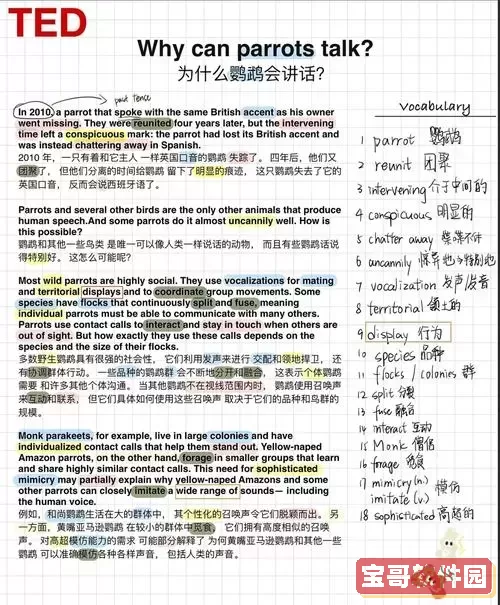 TED
Why can parrots talk?
为什么鹦鹉会讲话?
past tense
In 2010, a parrot that spoke with the same British accent as his owner
went missing. They were reunited four years later, but the intervening
time left a conspicuous mark: the parrot had lost its British accent and
was instead chattering away in Spanish.
2010 年，一只有着和它主人 一样英国口音的鹦鹉 失踪了。 四年后，他们又
团聚了， 但他们分离的时间给鹦鹉 留下了明显的痕迹， 这只鹦鹉失去了它的
英国口音， 反而会说西班牙语了。
Parrots and several other birds are the only other animals that produce
human speech.And some parrots do it almost uncannily well. How is
this possible?
鹦鹉和其他一些鸟类 是唯一可以像人类一样说话的动物， 而且有些鹦鹉话说
得特别好。 这怎么可能呢?
Most wild parrots are highly social. They use vocalizations for mating
and territorial displays and to coordinate group movements. Some
species have flocks that continuously split and fuse, meaning
individual parrots must be able to communicate with many others.
Parrots use contact calls to interact and stay in touch when others are
out of sight. But how exactly they use these calls depends on the
species and the size of their flocks.
多数野生鹦鹉具有很强的社会性， 它们利用发声来进行 交配和领地捍卫， 还
有协调群体行动。 一些品种的鹦鹉群 会不断地分开和融合， 这表示个体鹦鹉
需要 和许多其他个体沟通。 当其他鹦鹉不在视线范围内时， 鹦鹉使用召唤声
来互动和联系， 但它们具体如何使用这些召唤声 取决于它们的品种和鸟群的
规模。
Monk parakeets, for example, live in large colonies and have
individualized contact calls that help them stand out. Yellow-naped
Amazon parrots, on the other hand, forage in smaller groups that learn
and share highly similar contact calls. This need for sophisticated
mimicry may partially explain why yellow-naped Amazons and some
other parrots can closely imitate a wide range of sounds— including
the human voice.
例如，和尚鹦鹉生活在大的群体中， 其个性化的召唤声令它们脱颖而出。 另
一方面，黄嘴亚马逊鹦鹉 在较小的群体中觅食， 它们拥有高度相似的召唤
声。 对高超模仿能力的需求 可能部分解释了 为何黄嘴亚马逊鹦鹉和其他一些
鹦鹉 可以准确模仿各种各样声音， 包括人类的声音。
vocabulary
1 parrot 鹦鹉
2 reunit 团聚
3 intervening 介于中间的
4 conspicuous 明显的
5 chatter away 喋喋不休
6 uncannily 惊异地,特别地
7 vocalization 发声/发音
8 territorial 领土的
9 display 行为
10 species 品种
11 flocks / colonies 群
12 split 分裂
13 fuse 融合
14 interact 互动
15 Monk 僧侣
16 forage 觅食
17 mimicry (n.) 模仿
imitate (v.)
18 sophisticated 高超的
宝哥软件园